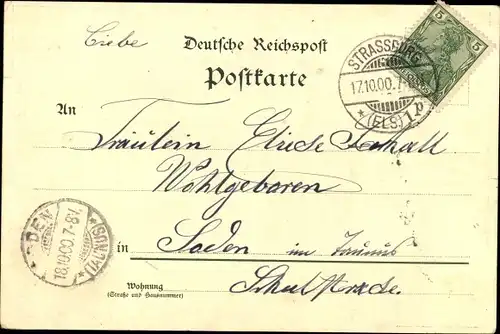 Deutsche Reichspost
Postkarte
STRASSBURG
17.10.00.7-8V.
* (ELS) 1 p
5 5
An
Fräulein Elise
Wohlgeboren
in Soden im Taunus
Schulstrasse.
Wohnung
(Straße und Hausnummer)
SODEN
18.10.00.7-8V.
*(TAUNUS)*